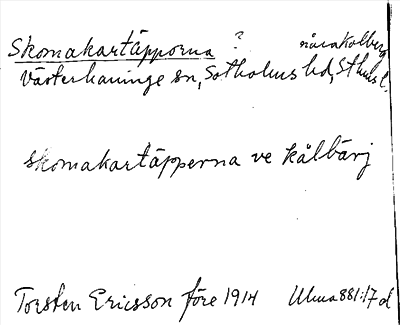 Skomakartäpporna ? nära Kolberg
Västerhaninge sn, Sotholms hd, Sthms l.
skomakartäpperna ve kålbärj
Torsten Ericsson före 1914 Ulma 881:17 d